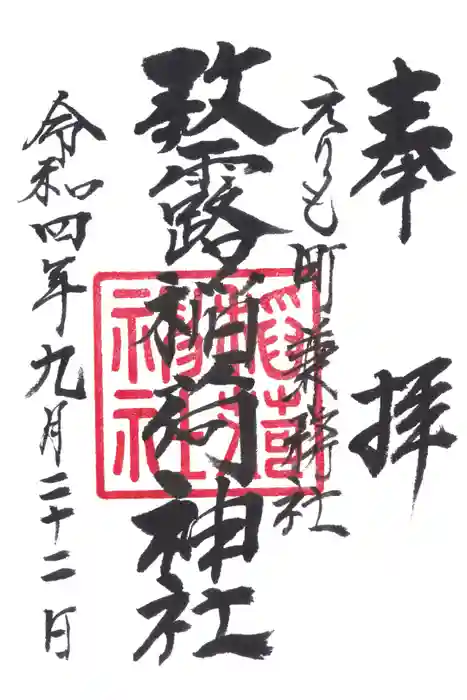 奉拝
えりも町兼務社
歌露稲荷神社
令和四年九月二十二日
神社